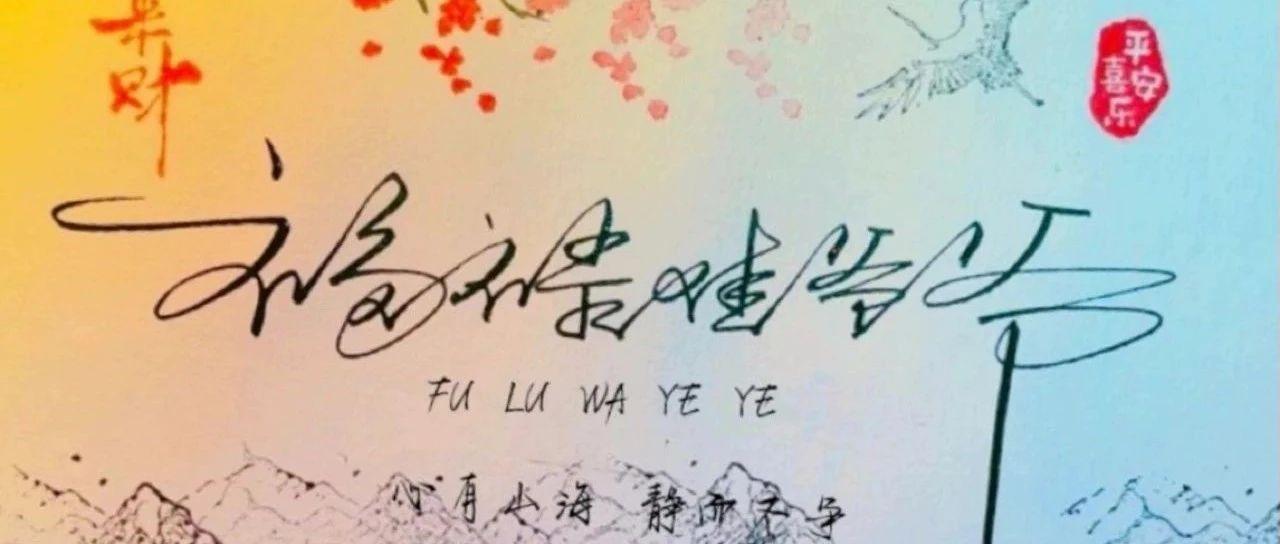 来财
平安喜乐
福禄娃爷爷
FU LU WA YE YE
心有山海 静而不争